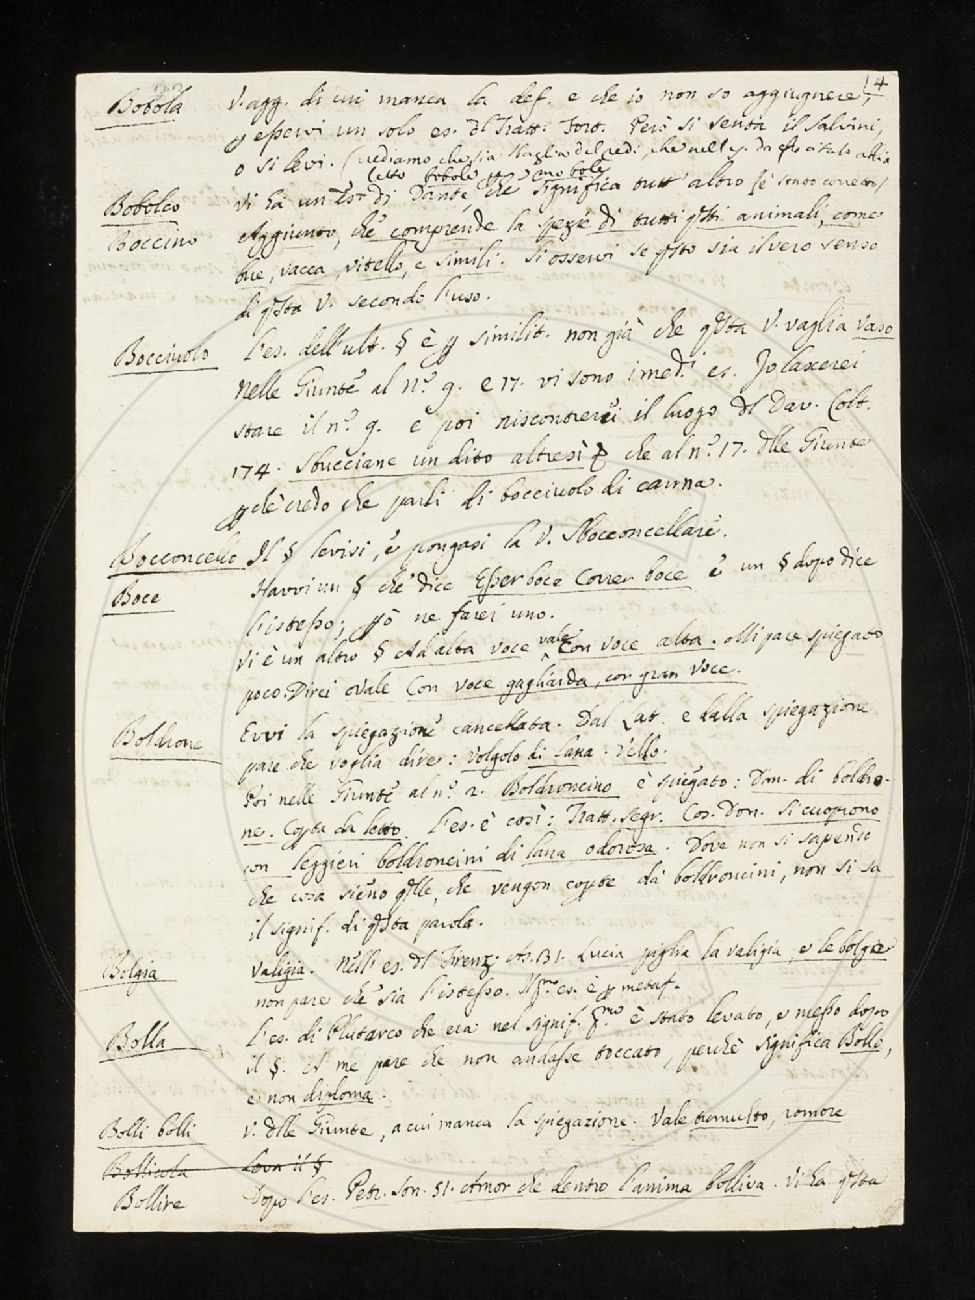 14
Bobola V. agg. di cui manca la def. e che io non so aggiugnere,
p esservi un solo es. dl Tratt. Fort. Però si senta il Salvini,
o si levi. (vediamo che sia sbaglio del Redi, che nell'es. da esso citato abbia
letto bobole
Bobolco Vi ha un es. di Dante, che significa tutt'altro
Boccino Aggiunto, che comprende la spezie di tutti qsti animali, come
bue, vacca, vitello, e simili. Si osservi se qsto sia il vero senso
di qsta V. secondo l'uso.
Bocciuolo L'es. dell'ult. § è p similit. non già che qsta V. vaglia vaso
Nelle Giunte al N.° 9. e 17. vi sono i med.i es. Io lascerei
stare il n.° 9. e poi riscontrerei il luogo dl Dav. Colt.
174. Sbucciane un dito altresì che al n.° 17. dlle Giunte
pchè credo che parli di bocciuolo di canna.
Bocconcello Il § levisi, e pongasi la V. Sbocconcellare.
Boce Havvi un § che dice Esser boce Correr boce e un § dopo dice
l'istesso; pò ne farei uno.
Vi è un altro § Ad alta voce vale Con voce alta. Mi pare spiegato
poco. Direi ovale Con voce gagliarda, con gran voce.
Boldrone Evvi la spiegazione cancellata. Dal Lat. e dalla spiegazione
pare che voglia dire: Volgolo di lana. Vello.
Poi nelle Giunte al n.° 2. Boldroncino è spiegato: Dim. di boldro-
ne. Copta da letto. L'es. è così: Tratt. segr. Cos. Don. Si cuoprono
con leggieri boldroncini di lana odorosa. Dove non si sapendo
che cosa sieno qlle, che vengon copte da boldroncini, non si sa
il signif. di qsta parola.
Bolgia Valigia. Nell'es. dl Firenz. As. 131. Lucia piglia la valigia, e le bolgie
non pare che sia l'istesso. es. è p metaf.
Bolla L'es. di Plutarco che era nel signif. p.mo è stato levato, e messo dopo
il §. A me pare che non andasse toccato, perchè significa Bollo,
e non diploma.
Bolli bolli V. dlle Giunte, a cui manca la spiegazione. Vale tumulto, romore
Bollicola Leva il §
Bollire Dopo l'es. Petr. Son. 51. Amor che dentro l'anima bolliva. Vi ha qsta